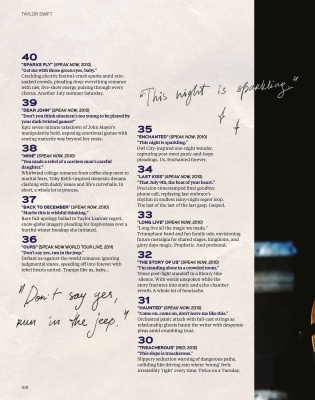 TAYLOR SWIFT
40
"SPARKS FLY" (SPEAK NOW, 2010)
"Get me with those green eyes, baby."
Crackling electric festival-crush sparks amid rain-
soaked crowds, pleading drop-everything romance
with raw, live-show energy pulsing through every
chorus. Another July summer Saturday.
39
"DEAR JOHN" (SPEAK NOW, 2010)
"Don't you think nineteen's too young to be played by
your dark twisted games?"
Epic seven-minute takedown of John Mayer's
manipulative hold, exposing emotional games with
searing maturity way beyond her years.
38
"MINE" (SPEAK NOW, 2010)
"You made a rebel of a careless man's careful
daughter."
Whirlwind college romance from coffee-stop meet to
marital fears. Toby Keith-inspired domestic dreams
clashing with daddy issues and life's curveballs. In
short, a whole lot to process.
37
"BACK TO DECEMBER" (SPEAK NOW, 2010)
"Maybe this is wishful thinking."
Rare full-apology ballad to Taylor Lautner regret,
snow-globe imagery pleading for forgiveness over a
hurtful winter breakup she initiated.
36
"OURS" (SPEAK NOW WORLD TOUR LIVE, 2011)
"Don't say yes, run in the jeep."
Defiant us-against-the-world romance ignoring
judgmental stares, speeding off into forever with
rebel hearts united. Tramps like us, baby…
"Don't say yes,
run in the jeep."
108
"This night is sparkling,"
35
"ENCHANTED" (SPEAK NOW, 2010)
"This night is sparkling."
Owl City-inspired one-night wonder,
capturing post-meet panic-and-hope
pleadings. Us, Enchanted forever.
34
"LAST KISS" (SPEAK NOW, 2010)
"That July 9th, the beat of your heart."
Precision-timestamped final goodbye
phone call, replaying last embrace's
rhythm in endless rainy-night regret loop.
The last of the last of the last gasp. Gasped.
33
"LONG LIVE" (SPEAK NOW, 2010)
"Long live all the magic we made."
Triumphant band and fan family ode, envisioning
future nostalgia for shared stages, kingdoms, and
glory days magic. Prophetic. And profound.
32
"THE STORY OF US" (SPEAK NOW, 2010)
"I'm standing alone in a crowded room."
Tense post-fight standoff in a library-like
silence. With words unspoken while the
story fractures into static and echo chamber
unravels. A whole lot of heartache.
31
"HAUNTED" (SPEAK NOW, 2010)
"Come on, come on, don't leave me like this."
Orchestral panic attack with full-cast strings as
relationship ghosts haunt the writer with desperate
pleas amid crumbling trust.
30
"TREACHEROUS" (RED, 2012)
"This slope is treacherous."
Slippery seduction warning of dangerous paths,
colliding like driving into where 'wrong' feels
irresistibly 'right' every time. Twice on a Tuesday.